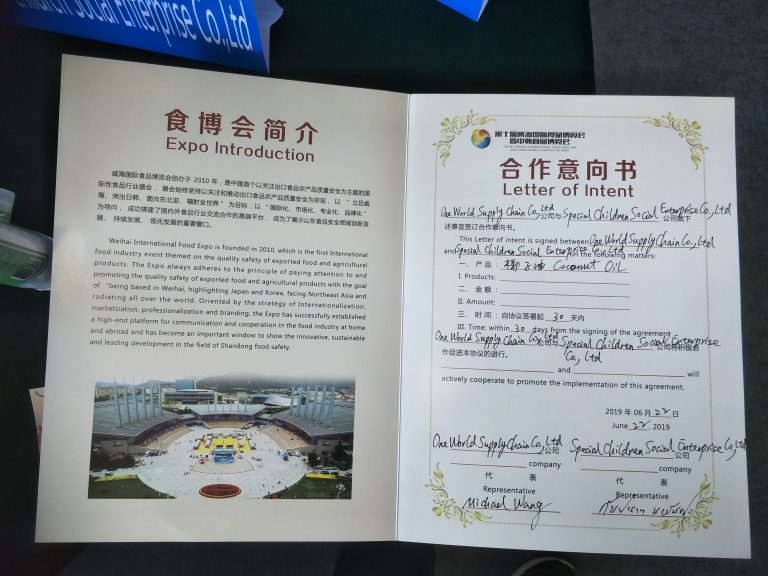 Children Social Enterprise Co.,Ltd
食博会简介
Expo Introduction
威海国际食品博览会创办于 2010 年，是中国首个以关注出口食品农产品质量安全为主题的国
际性食品行业盛会。展会始终坚持以关注和推动出口食品农产品质量安全为宗旨，以 “立足威
海、突出日韩、面向东北亚、辐射全世界” 为目标，以 “国际化、市场化、专业化、品牌化”
为导向，成功搭建了国内外食品行业交流合作的高端平台，成为了展示山东食品安全领域创新发
展、持续发展、领先发展的重要窗口。
Weihai International Food Expo is founded in 2010, which is the first International
food industry event themed on the quality safety of exported food and agricultural
products. The Expo always adheres to the principle of paying attention to and
promoting the quality safety of exported food and agricultural products with the goal
of “being based in Weihai, highlighting Japan and Korea, facing Northeast Asia and
radiating all over the world. Oriented by the strategy of Internationalization,
marketization, professionalization and branding, the Expo has successfully established
a high-end platform for communication and cooperation in the food industry at home
and abroad and has become an important window to show the innovative, sustainable
and leading development in the field of Shandong food safety.
第十届威海国际食品博览会
暨中韩商品博览会
合作意向书
Letter of Intent
One World Supply Chain Co,,Ltd 公司与 Special Children Social Enterprise Co,, Ltd 公司就下
述事宜签订合作意向书。
This Letter of intent is signed between One World Supply Chain Co,, Ltd
and Special Children Social Enterprise Co,, Ltd on the following matters:
一、产品： 椰子油 Coconut Oil
I. Products:
二、金额：
II. Amount:
三、时间：自协议签署起 30 天内
III. Time: within 30 days from the signing of the agreement
One World Supply Chain Co,, Ltd 公司与 Special Children Social Enterprise Co,, Ltd 公司将积极合
作促进本协议的进行。
and will
actively cooperate to promote the implementation of this agreement.
2019 年 06 月 22 日
June 22, 2019
One World Supply Chain Co,, Ltd 公司 Special Children Social Enterprise Co,, Ltd 公司
company company
代 表 代 表
Representative Representative
Michael Wang